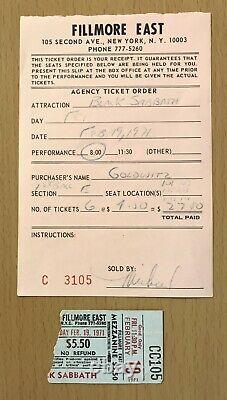 FILLMORE EAST
105 SECOND AVE., NEW YORK, N. Y. 10003
PHONE 777-5260
THIS TICKET ORDER IS YOUR RECEIPT. IT GUARANTEES
THAT THE SEATS SPECIFIED BELOW ARE BEING HELD FOR
YOU. PRESENT THIS SLIP AT THE BOX OFFICE AT ANY TIME PRIOR
TO THE PERFORMANCE AND YOU WILL BE GIVEN THE ACTUAL
TICKETS.
AGENCY TICKET ORDER
ATTRACTION Black SABBATH
DAY Fri
DATE Feb. 19, 1971
PERFORMANCE 8:00 11:30 (OTHER)
PURCHASER'S NAME GOLOWITZ
SECTION E SEAT LOCATION(S)
NO. OF TICKETS 6 @ 4.50 = 27.00
TOTAL PAID
INSTRUCTIONS:
SOLD BY:
C 3105
FILLMORE EAST
N.Y.C. Phone 777-5260
DAY FEB. 19, 1971
$5.50
NO REFUND
K SABBATH
FRI. 11:30 P.M.
FEBRUARY
1971
MEZZANINE $5.50
FILLMORE EAST
CC105